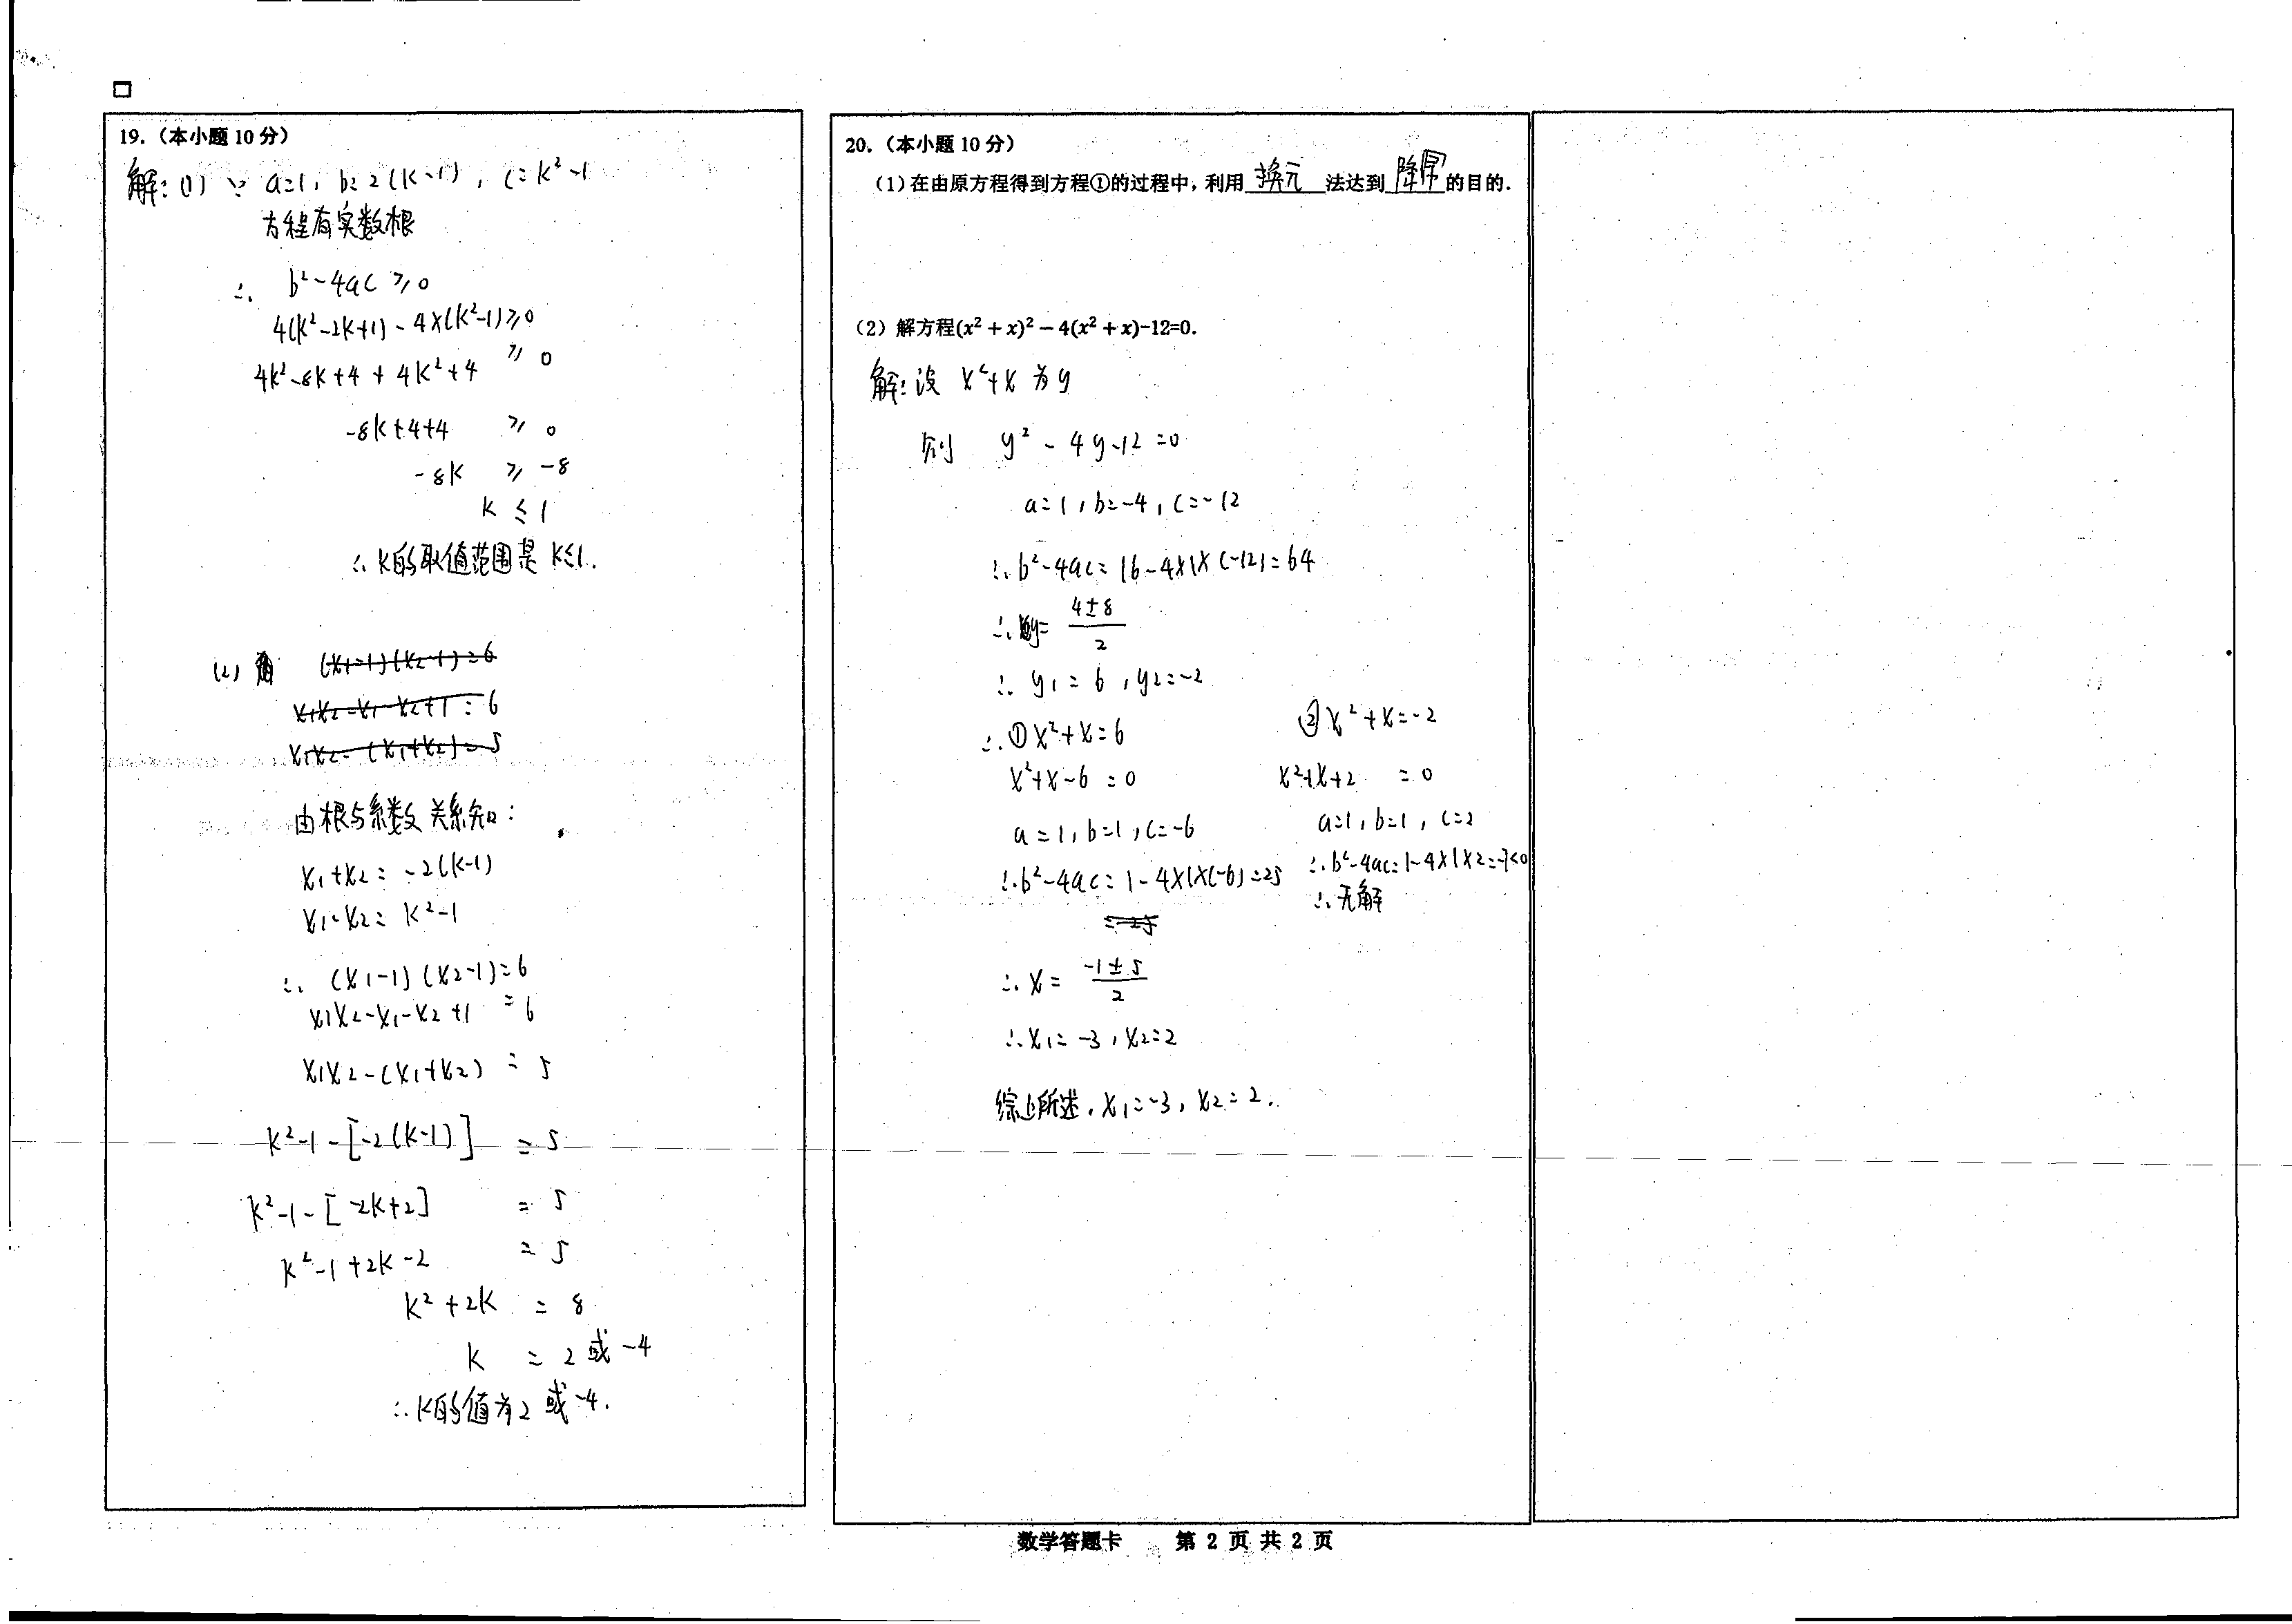 19.（本小题 10 分）
解：(1) ∵ a=1, b=2(k-1), c=k²-1
方程有实数根
∴ b²-4ac ≥0
4(k²-2k+1)-4×(k²-1)≥0
4k²-8k+4+4k²+4 ≥0
-8k+4+4 ≥ 0
-8k ≥ -8
k ≤ 1
∴k的取值范围是 k≤1.
(2)
(x₁-1)(x₂-1)=6
x₁x₂-x₁-x₂+1=6
x₁x₂-(x₁+x₂)=5
由根与系数关系知：
x₁+x₂=-2(k-1)
x₁·x₂=k²-1
∴ (x₁-1)(x₂-1)=6
x₁x₂-x₁-x₂+1 =6
x₁x₂-(x₁+x₂) = 5
k²-1-[-2(k-1)] =5
k²-1-[-2k+2] = 5
k²-1+2k-2 = 5
k²+2k = 8
k = 2或-4
∴k的值为2或-4.
20.（本小题 10 分）
（1）在由原方程得到方程①的过程中，利用 换元 法达到 降幂 的目的．
（2）解方程(x² + x)² − 4(x² + x)-12=0.
解：设 x²+x 为y
则 y²-4y-12=0
a=1, b=-4, c=-12
∴b²-4ac=16-4×1×(-12)=64
∴y= (4±8)/2
∴ y₁=6, y₂=-2
∴①x²+x=6
x²+x-6=0
a=1, b=1, c=-6
∴b²-4ac=1-4×1×(-6)=25
=25
∴x= (-1±5)/2
∴x₁=-3, x₂=2
②x²+x=-2
x²+x+2 =0
a=1, b=1, c=2
∴b²-4ac=1-4×1×2=-7<0
∴无解
综上所述，x₁=-3, x₂=2.
数学答题卡 第 2 页 共 2 页